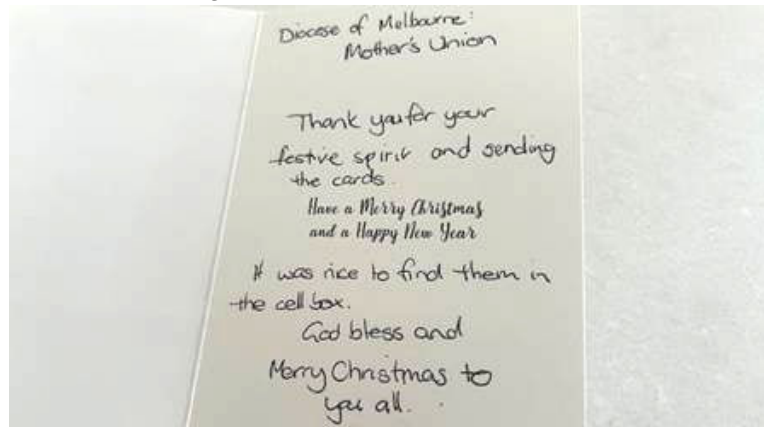 Diocese of Melbourne:
Mother's Union
Thank you for your
festive spirit and sending
the cards.
Have a Merry Christmas
and a Happy New Year
It was nice to find them in
the cell box.
God bless and
Merry Christmas to
you all.